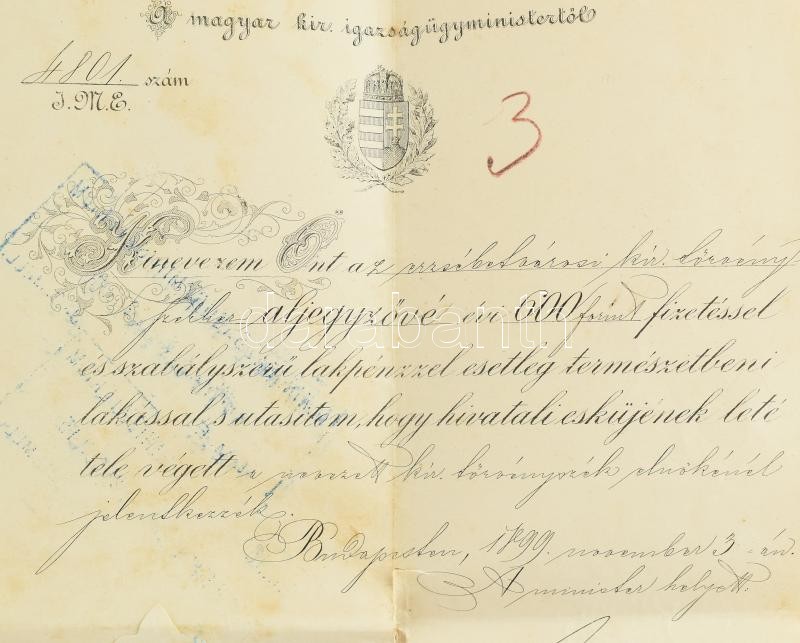 A magyar kir. igazságügyministertől
4801. szám
I.M.E.
3
Kinevezem Önt az erzsébetvárosi kir. törvény
székhez aljegyzővé évi 600 forint fizetéssel
és szabályszerű lakpénzzel esetleg természetbeni
lakással s utasitom, hogy hivatali esküjének leté
tele végett a nevezett kir. törvényszék elnökénél
jelentkezzék.
Budapesten, 1899. november 3-án.
A minister helyett:
darabanth